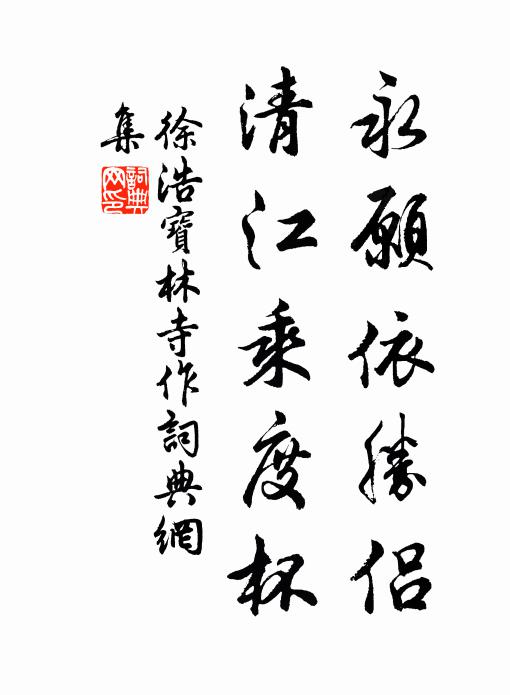 永願依勝侣
清江乘度杯
徐浩寶林寺作詞典網
集
詞典网印